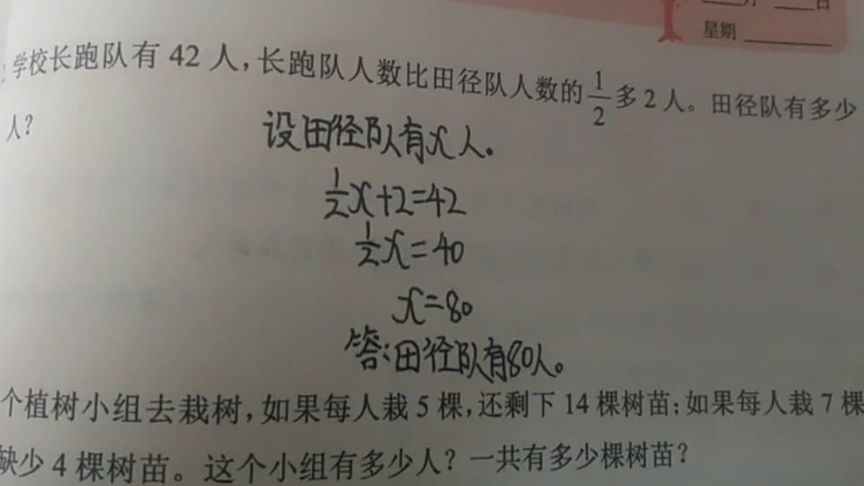 月 日
星期
学校长跑队有 42 人，长跑队人数比田径队人数的1/2多 2 人。田径队有多少
人？
设田径队有x人。
1/2x+2=42
1/2x=40
x=80
答:田径队有80人。
个植树小组去栽树，如果每人栽 5 棵，还剩下 14 棵树苗；如果每人栽 7 棵
缺少 4 棵树苗。这个小组有多少人？一共有多少棵树苗？